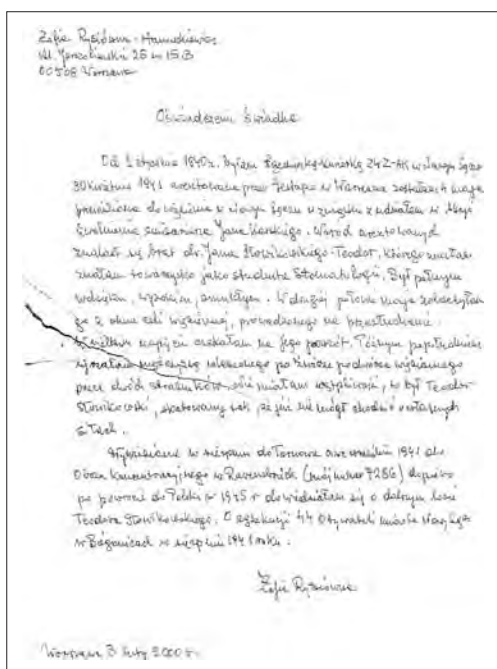 Zofia Rysiówna-Hanuszkiewicz
Al. Jerozolimskie 25 m 15B
00508 Warszawa
Oświadczenie świadka
Od 1 stycznia 1940 r. byłam łączniczką-kurierką ZWZ-AK w Nowym Sączu
30 kwietnia 1941 aresztowana przez Gestapo w Warszawie zostałam w maju
przewieziona do więzienia w Nowym Sączu w związku z udziałem w akcji
uwolnienia emisariusza Jana Karskiego. Wśród aresztowanych
znalazł się brat dr. Jana Słowikowskiego - Teodor, którego znałam
znałam towarzysko jako studenta Stomatologii. Był pełnym
wdzięku, wysokim, smukłym. W drugiej połowie maja zobaczyłam
go z okna celi więziennej, prowadzonego na przesłuchanie.
Z wielkim napięciem czekałam na jego powrót. Późnym popołudniem
ujrzałam mężczyznę wleczonego po bruku podwórza więziennego
przez dwóch strażników, nie miałam wątpliwości, to był Teodor
Słowikowski, skatowany tak, że już nie mógł chodzić o własnych
siłach.
Wywieziona w sierpniu do Tarnowa a we wrześniu 1941 do
Obozu Koncentracyjnego w Ravensbrück (mój numer 7286) dopiero
po powrocie do Polski w 1945 r dowiedziałam się o dalszym losie
Teodora Słowikowskiego. O egzekucji 44 Obywateli miasta Nowy Sącz
w Biegonicach w sierpniu 1941 roku.
Zofia Rysiówna
Warszawa 3 luty 2000 r.